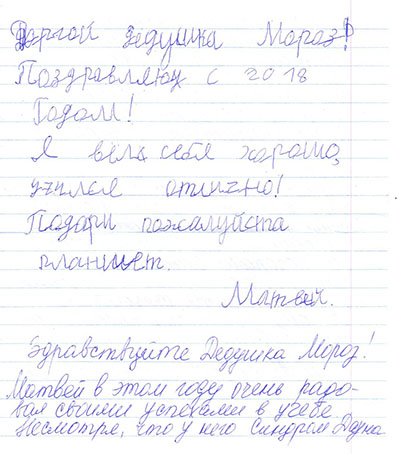 Даргой дедушка Мороз!
Поздравляю с 2018
Годом!
Я вела себя харошо,
учился отлично!
Подари пожалуйста
планшет.
Матвей.
Здравствуйте Дедушка Мороз!
Матвей в этом году очень радо-
вал своими успехами в учебе
Несмотря, что у него Синдром Дауна